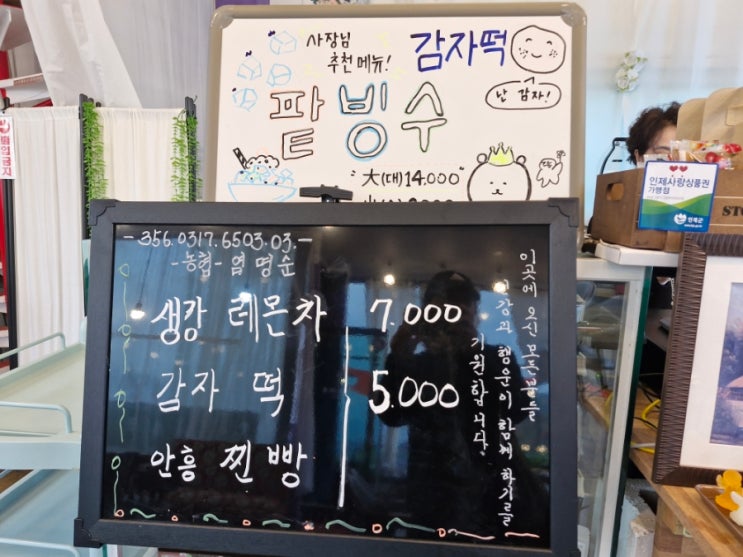 사장님
추천 메뉴!
감자떡
팥빙수
난 감자!
"大(대)14.000"
출입금지
인제사랑상품권
가맹점
인제군
-356.0317.6503.03.-
-농협- 염명순
생강 레몬차 7.000
감자 떡 5.000
안흥 찐빵
이곳에 오신 모든분들
건강과 행운이 함께 하기를
기원합니다.